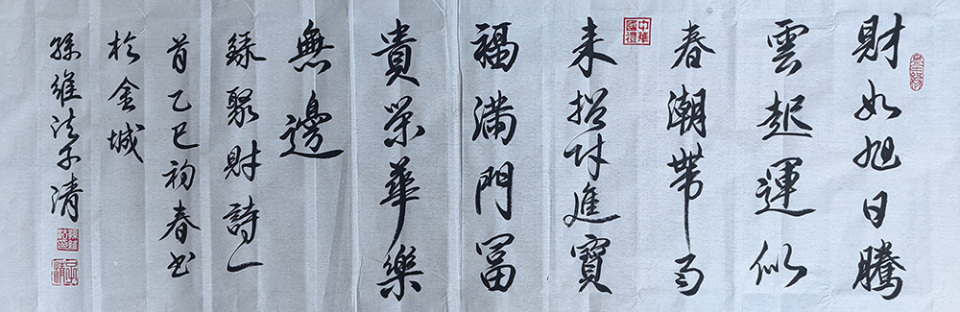 財如旭日騰
雲起運似
春潮帶雨
来招财進寶
福滿門冨
貴榮華樂
無邊
録聚财詩一
首乙巳初春书
於金城
孫維法子清